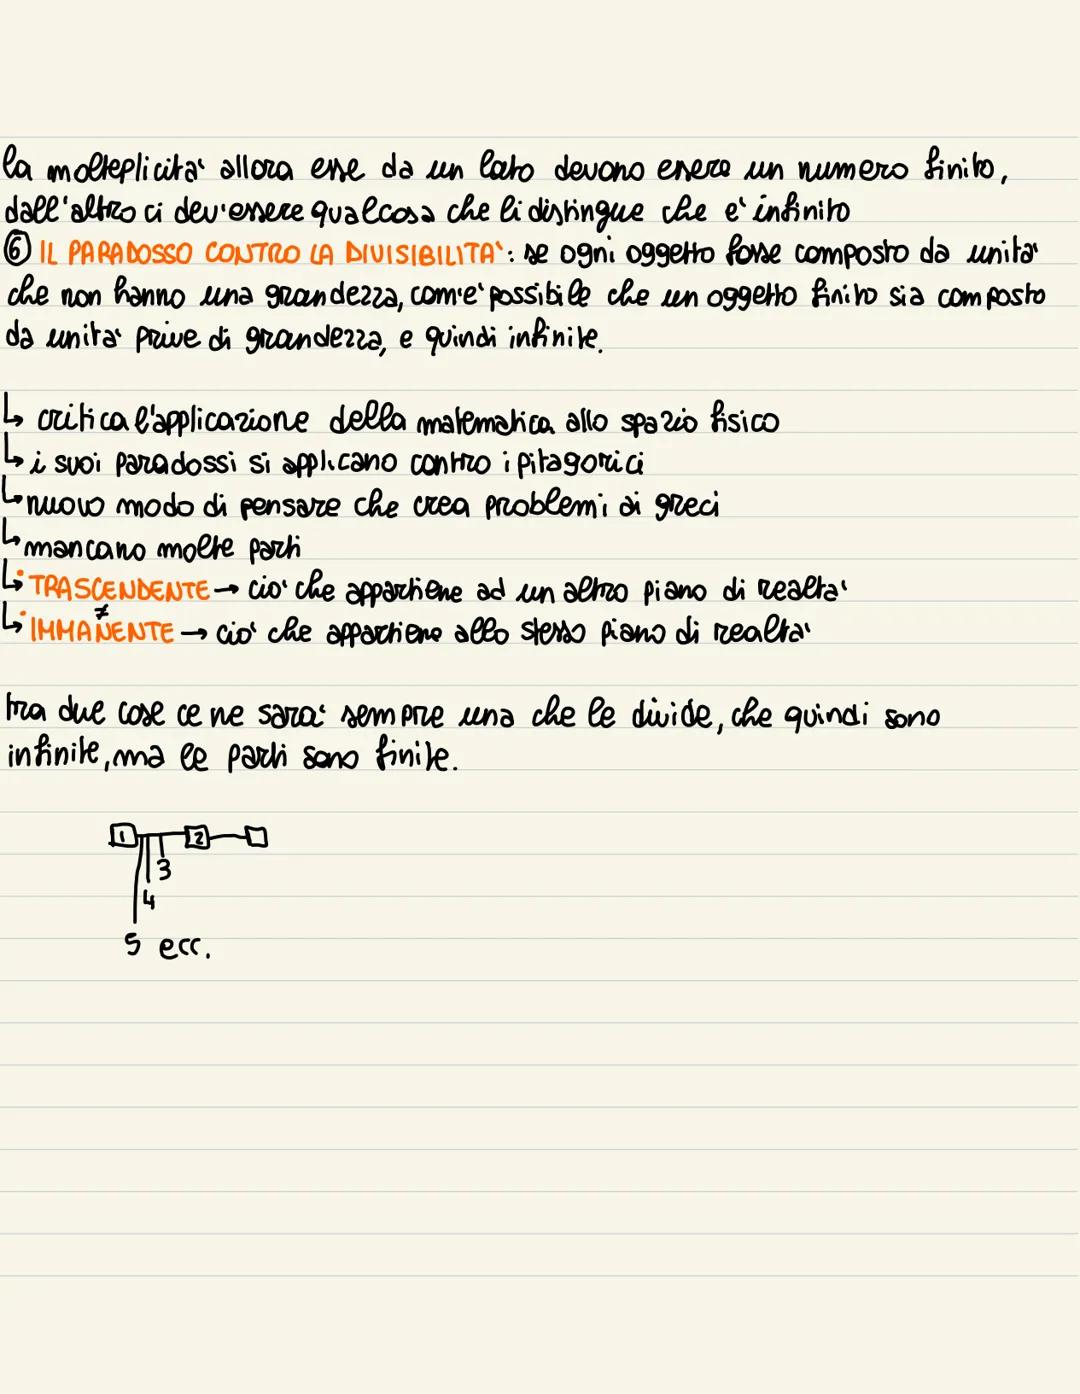 la molteplicita' allora esse da un lato devono essere un numero finito,
dall'altro ci dev'essere qualcosa che li distingue che e' infinito
⑥ IL PARADOSSO CONTRO LA DIVISIBILITA': se ogni oggetto fosse composto da unita'
che non hanno una grandezza, com'e' possibile che un oggetto finito sia composto
da unita' prive di grandezza, e quindi infinite.
↳ critica l'applicazione della matematica allo spazio fisico
↳ i suoi paradossi si applicano contro i pitagorici
↳ nuovo modo di pensare che crea problemi ai greci
↳ mancano molte parti
↳ • TRASCENDENTE → cio' che appartiene ad un altro piano di realta'
≠
↳ • IMMANENTE → cio' che appartiene allo stesso piano di realta'
tra due cose ce ne sara' sempre una che le divide, che quindi sono
infinite, ma le parti sono finite.
1 2
3
4
5 ecc.